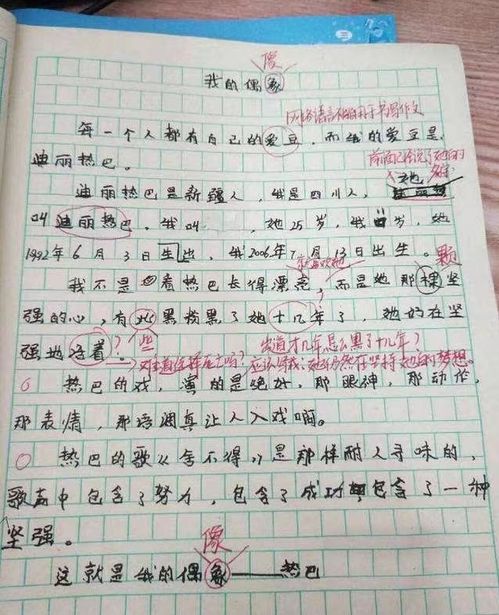 像
我的偶象
网络语言不能用于书写作文
每一个人都有自己的爱豆，而我的爱豆是
迪丽热巴。
前面已经说了她的名字
迪丽热巴是新疆人，我是四川人，她
叫迪丽热巴，我叫 ，她25岁，我 岁，她
1992年6月3日生出，我2006年7月13日出生。
就喜欢她
颗
我不是 看热巴长得漂亮，而是她那棵坚
强的心，有此黑粉黑了她十几年了，她好在坚
些
出道才几年怎么黑了十几年？
强地活着。
对生命垂掉死亡吗？应该写成：她仍然在坚持她自己的梦想。
热巴的戏，演的是绝妙，那眼神，那动作，
那表情，那语调真让人入戏啊。
热巴的歌《舍不得》是那样耐人寻味的，
歌声中包含了努力，包含了成功 包含了一种
坚强。
像
这就是我的偶象——热巴